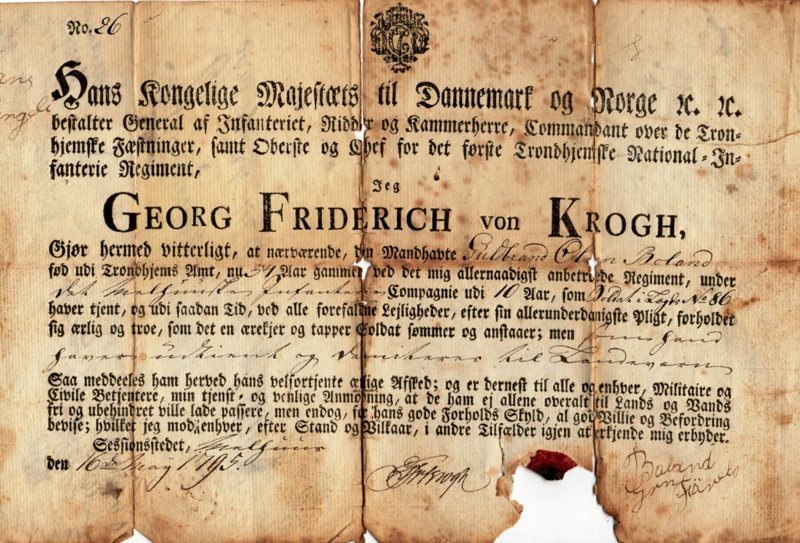 No. 26
Hans Kongelige Majestæts til Dannemark og Norge ꝛc. ꝛc.
bestalter General af Infanteriet, Ridder og Kammerherre, Commandant over de Tron-
hjemske Fæstninger, samt Oberste og Chef for det første Trondhjemske National-In-
fanterie Regiment,
Jeg
GEORG FRIDERICH von KROGH,
Gjør hermed vitterligt, at nærværende, den Mandhavte Gulbrand Olsen Boland
fød udi Trondhjems Amt, nu 34 Aar gammel, ved det mig allernaadigst anbetroede Regiment, under
det Melhuuske Infanterie Compagnie udi 10 Aar, som Soldat i Lægd No 86
haver tjent, og udi saadan Tid, ved alle forefaldne Lejligheder, efter sin allerunderdanigste Pligt, forholdet
sig ærlig og troe, som det en ærekjer og tapper Soldat sømmer og anstaaer; men som hand
haver udtient og dimiteres til Landeværn
Saa meddeeles ham herved hans velfortjente ærlige Afsked; og er dernest til alle og enhver, Militaire og
Civile Betjentere, min tjenst- og venlige Anmodning, at de ham ej allene overalt til Lands og Vands
fri og ubehindret ville lade passere, men endog, for hans gode Forholds Skyld, al god Villie og Befordring
bevise; hvilket jeg mod enhver, efter Stand og Vilkaar, i andre Tilfælder igjen at erkjende mig erbyder.
Sessionsstedet, Melhuus
den 16de May 1795.
GFvKrogh
Boland